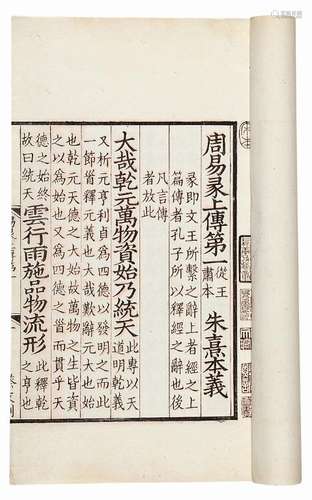 周易彖上傳第一
從王
肅本
朱熹本義
彖即文王所繫之辭上者經之上
篇傳者孔子所以釋經之辭也後
凡言傳
者放此
大哉乾元萬物資始乃統天
此專以天
道明乾義
又析元亨利貞爲四德以發明之而此
一節首釋元義也大哉歎辭元大也始
也乾元天德之大始故萬物之生皆資
之以爲始也又爲四德之首而貫乎天
德之始終
故曰統天
雲行雨施品物流形
此釋乾
之亨也